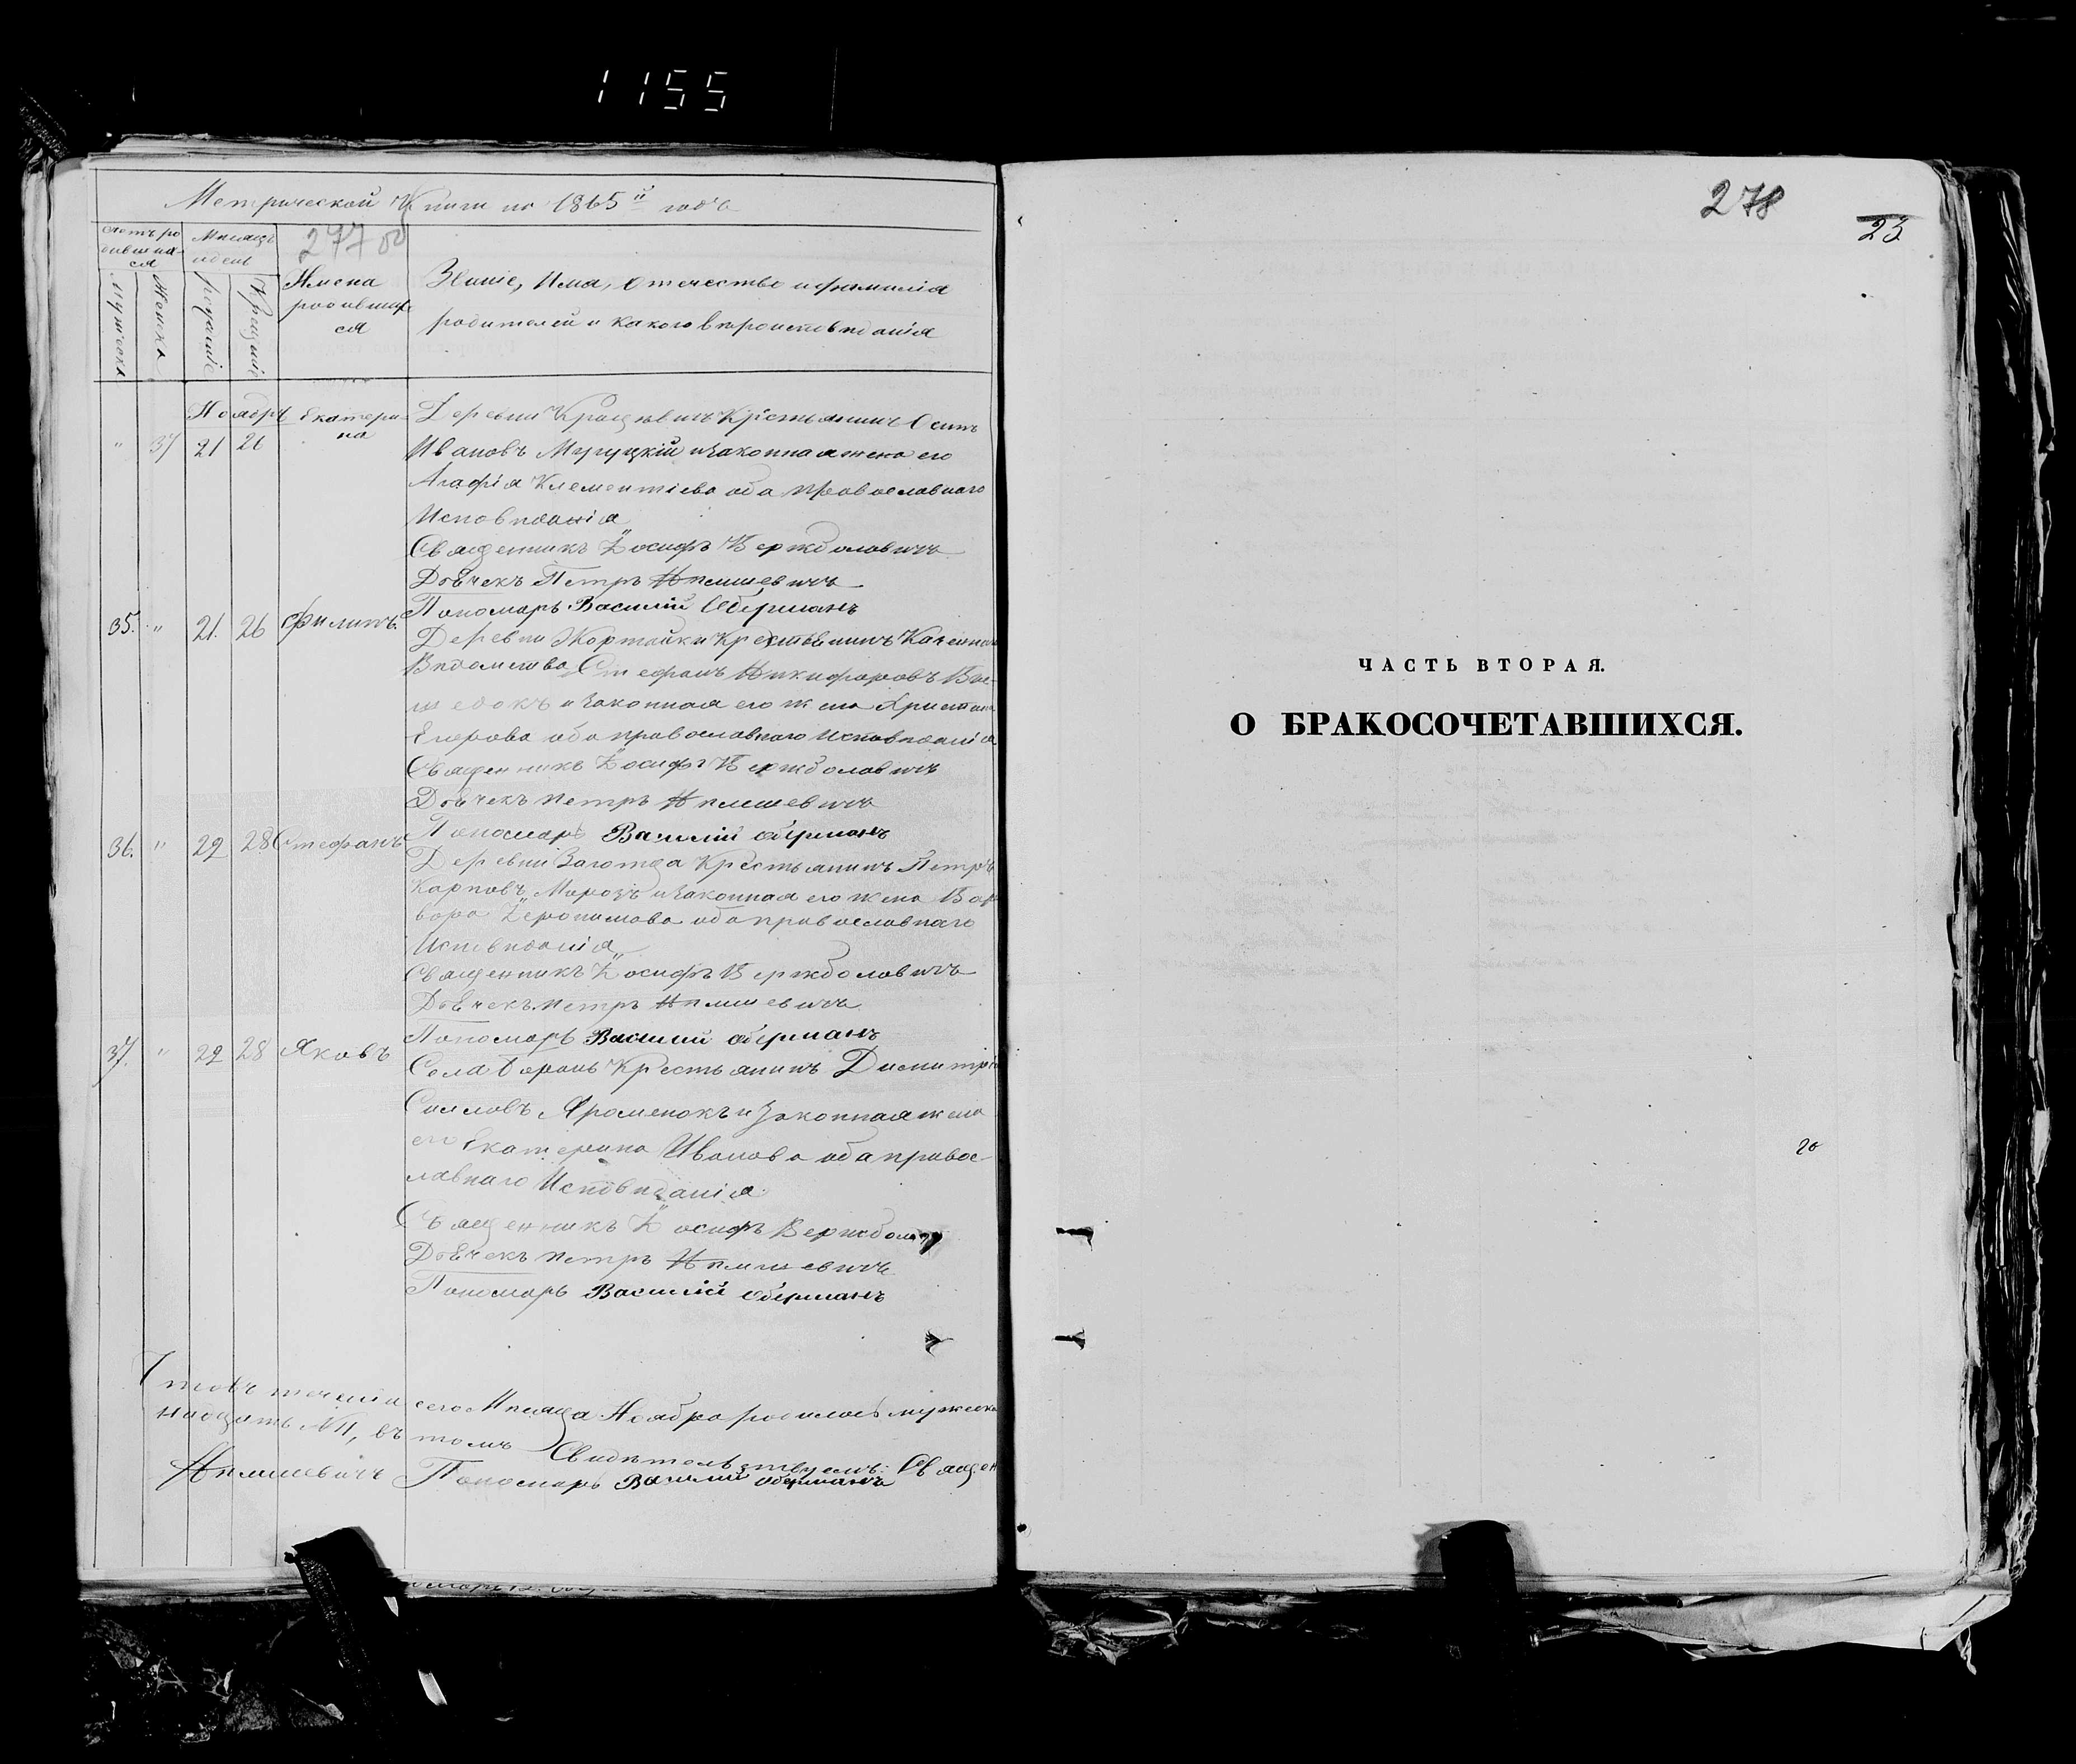 1155
Метрической Книги на 1865й годъ
277 об
Счетъ родившихся
Мужеска
Женска
Мѣсяцъ и день
рожденіе
Крещеніе
Имена родившихся
Званіе, Имя, Отечество и фамилія
родителей и какого вѣроисповѣданія
Ноябрь Екатерина
" 37 21 26
Деревни Крестьянинъ Осипъ
Ивановъ и законная жена его
Агафія Клементіева оба православнаго
Исповѣданія
Священникъ Іосифъ Вержболовичъ
Дьячекъ Петръ Нѣмшевичъ
Пономарь Василій Оберманъ
35. " 21. 26 Филипъ
Деревни Жортайки Крестьянинъ
Вѣдомства Стефанъ Никифоровъ
и законная его жена
Егорова оба православнаго исповѣданія
Священникъ Іосифъ Вержболовичъ
Дьячекъ Петръ Нѣмшевичъ
Пономарь Василій Оберманъ
36. " 22 28 Стефанъ
Деревни Крестьянинъ Петръ
Карповъ Морозъ и законная его жена Вар
вара Іеронимова оба православнаго
Исповѣданія
Священникъ Іосифъ Вержболовичъ
Дьячекъ Петръ Нѣмшевичъ
Пономарь Василій Оберманъ
37. " 22 28 Яковъ
Села Крестьянинъ Димитрій
и Законная жена
его Екатерина Иванова оба православнаго Исповѣданія
Священникъ Іосифъ
Дьячекъ Петръ Нѣмшевичъ
Пономарь Василій Оберманъ
Что въ теченіи сего Мѣсяца Ноября родилось мужеска
въ томъ Свидѣтельствуемъ: Священ
Нѣмшевичъ Пономарь Василій Оберманъ
278
23
ЧАСТЬ ВТОРАЯ.
О БРАКОСОЧЕТАВШИХСЯ.